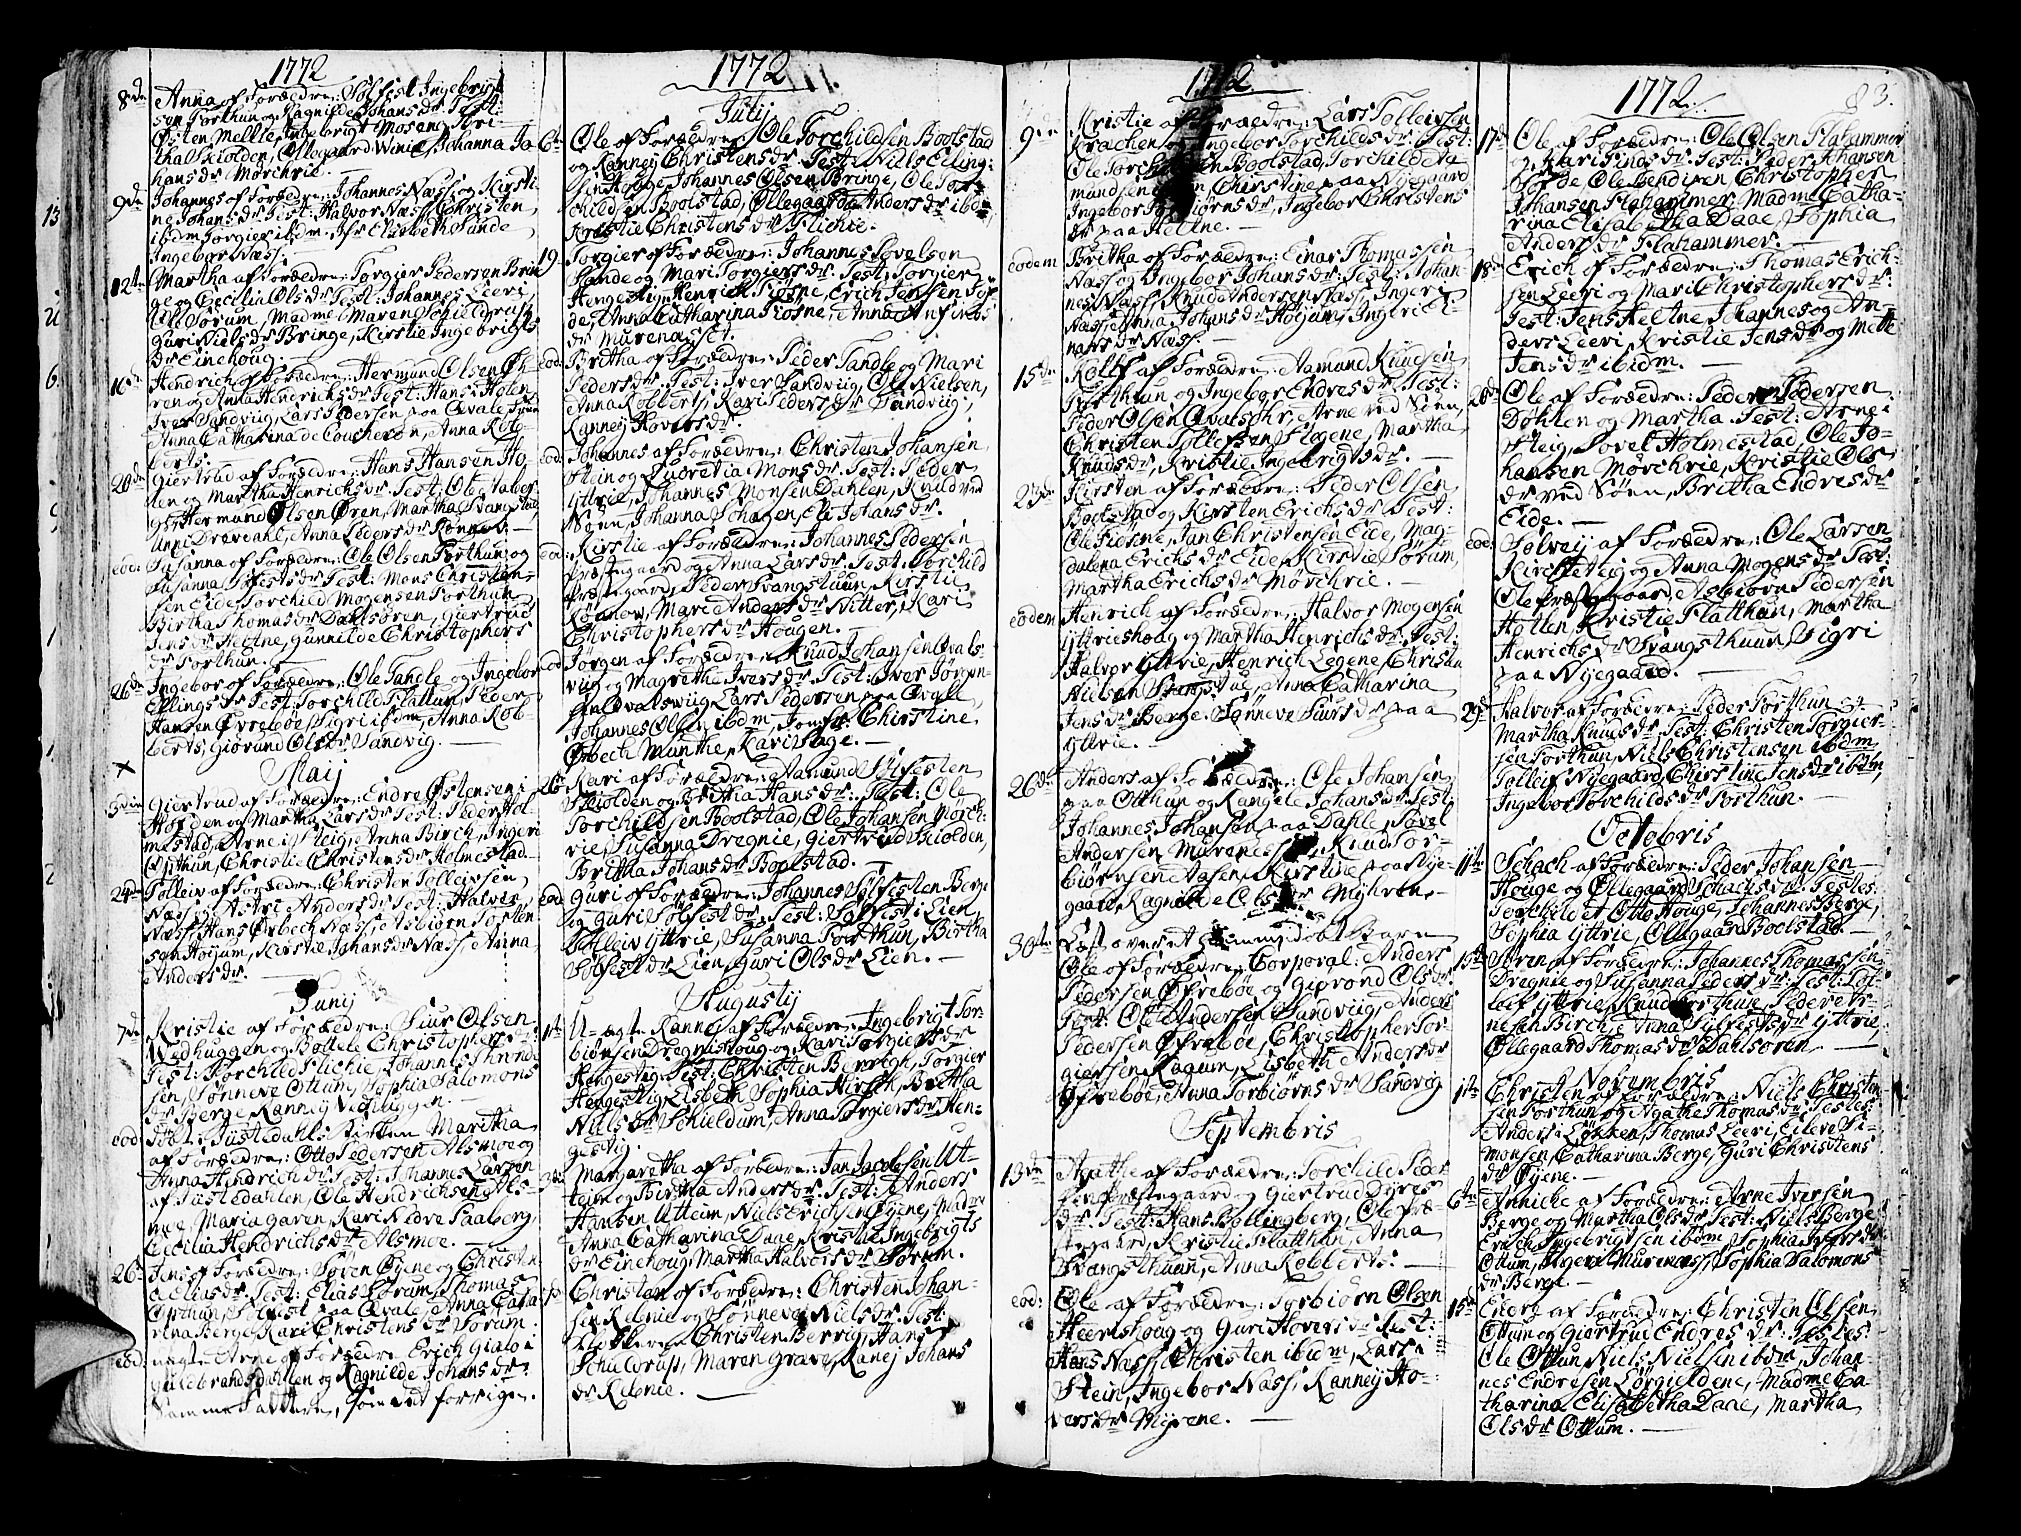 1772
8de Anna af Forældre: Solfest Ingebrigt
sen Forthun og Ragnilde Johansdr Test:
Østen Melle, Ingebrigt Moseng, Kri-
tha Skiolden, Ollegaard Winie, Johanna Jo
hansdr Mørchrie.
9de Johannes af Forældre: Johannes Næss og Kirsti
ne Johansdr Test: Halvor Næss, Christen
ibdm Torgier ibdm. Elisebeth Sande
Ingebor Næss.
12te Martha af Forældre: Torgier Pedersen Brin
ge og Cecilia Olsdr Test: Johannes Leeri,
Ole Sørum, Madme Maren Schieldrup
Guri Nielsdr Bringe, Kirstie Ingebrigts
dr Einehoug.
16de Hendrich af Forældre: Hermund Olsen Øh
ren og Anna Hendrichsdr Test: Hans Holen
Iver Sandviig, Lars Pedersen paa Qvale
Anna Catharina de Coucheron, Anna Rob-
berts.
20de Giertrud af Forældre: Hans Hansen Ho
len og Martha Henrichsdr Test: Ole Halvor
Hermund Olsen Øren, Martha Svangstad,
Unni Drøvdahl, Anna Pedersdr Rønnei.
eod: Susanna af Forældre: Ole Olsen Forthun og
Susanna Solfestsdr Test: Mons Christen-
sen Eide, Torchild Mogensen Forthun
Birtha Thomasdr Dahlsøren, Giertrud
Jensdr Heltne, Gunnilde Christophers
dr Forthun.
26de Ingebor af Forældre: Ole Tandle og Ingebor
Ellingsdr Test: Torchild Flattun, Peder
Hansen Øvrebøe, Sigri ibdm, Anna Rob-
berts, Giørund Olsdr Sandvig.
Maij
3die Giertrud af Forældre: Endre Østensen i
og Martha Larsdr Test: Peder Hol-
mestad, Arne i Steig, Anna Birch, Ingeri
Opthun, Christie Christensdr Holmestad.
24de Tolleiv af Forældre: Christen Tolleivsen
Næss og Astri Andersdr Test: Halvor
Næss, Hans Orbech Næss, Asbiørn Torsten
sen Høijum, Kirstie Johansdr Næss, Anna
Andersdr.
Junij
7de Kristie af Forældre: Siur Olsen
Wedhuggen og Bøttele Christophersdr
Test: Torchild Flichie, Johannes
sen, Sønneve Ottum, Sophia Salomons
dr Berge, Ranney Vedhuggen.
eod Døbt i Justedahls Kirken Maritha
af Forældre: Otto Pedersen Alsmoe og
Anna Hendrichdr Test: Johannes Larsen
af Justedahlen, Ole Hendrichsen Als-
moe, Maria Garen, Kari Nedre Faaberg,
Cecilia Hendrichsdr Alsmoe.
26de Jens af Forældre: Søren Øyene og Christie
Eliasdr Test: Elias Sørum, Thomas
Opthun, Solfest paa Qvale, Anna Catha
rina Berge, Kari Christensdr Sørum.
eod: uægte Arne af Forældre Erich Gialo i
Guldbrandsdahlen og Ragnilde Johansdr
Samme Fattere, som ved forrige.
1772
Julij
6te Ole af Forældre: Ole Torchildsen Boolstad
og Ranney Christensdr Test: Niels Elling-
sen Hough, Johannes Olsen Bringe, Ole Tor-
childsen Boolstad, Ollegaard Andersdr ibdm
Kristie Christensdr Flichie.
19 Torgier af Forældre: Johannes Sovelsen
Sande og Mari Torgiersdr Test: Torgier
Hengestig, Henrich Fiøsne, Erich Jensen For
de, Anna Catharina Fiøsne, Anna Anfinds
dr Murenasset.
eod: Britha af Forældre: Peder Tandle og Mari
Pedersdr Test: Iver Sandviig, Ole Nielsen,
Anna Robberts, Kari Pedersdr Sandviig,
Ranney Hoversdr.
eod: Johannes af Forældre: Christen Johansen
Stein og Lucretia Monsdr Test: Peder
Yttrie, Johannes Monsen Dahlen, Knud ved
Søen, Johanna Schagen, Eli Johansdr.
eod: Kirstie af Forældre: Johannes Pedersen
Præstegaard og Anna Larsdr Test: Torchild
Præstegaard, Peder Svangstuun, Kirstie
Rønnow, Mari Andersdr Nitter, Kari
Christophersdr Hougen.
eod: Jørgen af Forældre: Knud Johansen Qvals-
viig og Magrethe Iversdr Test: Iver Jørgen-
sen Qvalsviig, Lars Pedersen paa Qvale
Johannes Olsen ibdm, Jomfr: Chirstine
Ørbech Munthe, Kari Hage.
26de Kari af Forældre: Aamund Solfesten
Skiolden og Britha Hansdr Test: Ole
Torchildsen Boolstad, Ole Johansen Mørch-
rie, Susanna Dregnie, Giertrud Skiolden,
Britha Johansdr Boolstad.
eod: Guri af Forældre: Johannes Solfesten Berge
og Guri Solfestdr Test: Solfest i Eien,
Schleiv Yttrie, Susanna Forthun, Birtha
Solfestdr Eien, Guri Olsdr Eien.
Augustij
1te U-ægte Rannei af Forældre: Ingebrigt Tor-
biørnsen Dregnishoug og Kari Torgiersdr
Hengestig Test: Christen Berrigh, Torgier
Hengestig, Elsbeth Sophia Hirsch, Britha
Nielsdr Schieldum, Anna Torgiersdr Hen-
gestig.
3die Margaretha af Forældre: Jan Jacobsen Ut-
teim og Birtha Andersdr Test: Anders
Hansen Utteim, Niels Erichsen Øyene, Madme
Anna Catharina Daae, Kristie Ingebrigts
dr Einehoug, Martha Halvorsdr Sørum.
Christen af Forældre: Christen Johan-
sen Rebnie og Sønneve Nielsdr Test:
Klokkeren Christen Berrig, Hans
Schieldrup, Maren Grave, Ranej Johans
dr Rebnie.
1772
9de Kristie af Forældre: Lars Tolleivsen
Krachen og Ingebor Torchildsdr Test:
Ole Torchildsen Boolstad, Torchild Aa
mundsen Christine paa Nijegaard
Ingebor Torbiørnsdr, Ingebor Christens
dr paa Heltne.
eodem Britha af Forældre: Einar Thomassen
Næss og Ingebor Johansdr Test: Johan-
nes Næss, Knud Andersen Næss, Ingeri
Næss, Anna Johansdr Høijum, Ingeri Ei-
narsdr Næss.
15de Rolff af Forældre: Aamund Knudsen
Forthun og Ingebor Endresdr Test:
Peder Olsen Qvalsøhr, Arne ved Søen,
Christen Tollefsen Flogene, Martha
Knudsdr, Kristie Ingebrigtsdr.
23de Kirsten af Forældre: Peder Olsen
Boolstad og Kirsten Erichsdr Test:
Ole Fiøsne, Jan Christensen Eide, Mag-
dalena Erichsdr Eide, Kirstie Sørum,
Martha Erichsdr Mørchrie.
eodem Henrich af Forældre: Halvor Mogensen
Yttrieshoug og Martha Henrichsdr Test:
Halvor Yttrie, Henrich Legene, Christen
Nielsen Svangstue, Anna Catharina
Jensdr Berge, Sønneve Siursdr paa
Yttrie.
26de Anders af Forældre: Ole Johansen
paa Otthun og Rangele Johansdr Test:
Johannes Johansen paa Dahle, Sovel
Andersen Murenes, Knud Tor-
biørnsen Aasen, Kirstine paa Nye-
gaard, Ragnilde Olsdr Myhren.
30te Læst over et hiemmedøbt Barn
Ole af Forældre: Corporal: Anders
Pedersen Øvrebøe og Giørond Olsdr
Test: Ole Andersen Sandviig, Anders
Pedersen Øfrebøe, Christopher Tor-
giersen Ragum, Lisbeth Andersdr
Øfrebøe, Anna Torbiørnsdr Sandvig
Septembris
13de Agathe af Forældre: Torchild Peder
sen Præstegaard og Giertrud Dyres
dr Test: Hans Bollingberg, Ole Præ-
stegaard, Kristie Flatthun, Anna
Svangsthuun, Anna Robberts.
eod: Ole af Forældre: Torbiørn Olsen
Heerishoug og Guri Hoversdr Test:
Hans Næss, Christen ibidm, Lars i
Stein, Ingebor Næss, Ranney Ho-
versdr Myrene.
1772 83.
17de Ole af Forældre: Ole Olsen Flahammer
og Kari Finsdr Test: Peder Johansen
Førde Ole Bendixen Christopher
Johansen Flahammer, Madme Catha-
rina Elisabetha Daae, Sophia
Andersdr Flahammer.
18de Erich af Forældre: Thomas Erich-
sen Leeri og Mari Christophersdr
Test: Jens Heltne Johannes og An-
ders Leeri, Kristie Jensdr og Mette
Jensdr ibidm.
20de Ole af Forældre: Peder Pedersen
Døhlen og Martha Test: Arne i
Steig, Sovel Holmestad, Ole Jo-
hansen Mörchrie, Kristie Ols
dr ved Søen, Britha Endresdr
Eide.
eod: Solveij af Forældre: Ole Larsen
Kircheteig og Anna Mogensdr Test:
Ole Præstegaard, Asbiørn Pedersen
Hølten, Kristie Flatthun, Martha
Henrichsdr Svangsthuun, Sigri
paa Nijegaard.
29de Halvor af Forældre: Peder Forthun og
Martha Knudsdr Test: Christen Torgier-
sen Forthun, Niels Christensen ibdm,
Tolleif Nijegaard, Chirstine Jensdr ibdm,
Ingebor Torchildsdr Forthun.
Octobris
11te Schach af Forældre: Peder Johansen
Houge og Ollegaard Schachsdr Testes:
Torchild et Otto Houge, Johannes Berge,
Sophia Yttrie, Ollegaar Boolstad.
15te Søren af Forældre: Johannes Thomassen
Dregnie og Susanna Pedersdr Test: Tol-
leif Yttrie, Knud Forthun, Peder Ar-
nesen Birch, Anna Sylfestsdr Yttrie,
Ollegaard Thomasdr Dahlsøren.
Novembris
1te Christen af Forældre: Niels Christen
sen Forthun og Agathe Thomasdr Testes:
Anders Løkken, Thomas Leeri, Eileve Si-
monsen, Catharina Berge, Guri Christens
dr Øyene.
6te Anniche af Forældre: Arne Iversen
Berge og Martha Olsdr Test: Niels Berge
Erich Ingebrigtsen ibdm Sophia Iversdr
Ottum, Ingeri Murenæss, Sophia Salomons
dr Berge.
15de Endre af Forældre: Christen Olsen
Ottum og Giertrud Endresdr Testes:
Ole Ottun, Niels Nielsen ibdm, Johan-
nes Endresen Lørgieldene, Madme Ca-
tharina Elisabetha Daae, Martha
Olsdr Ottum.